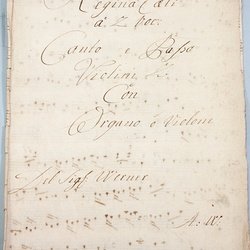 Regina Cæli
à 2 voc:
Canto e Basso
Violini 2
Con
Organo o Violone
Del Sigr Werner
A: W: